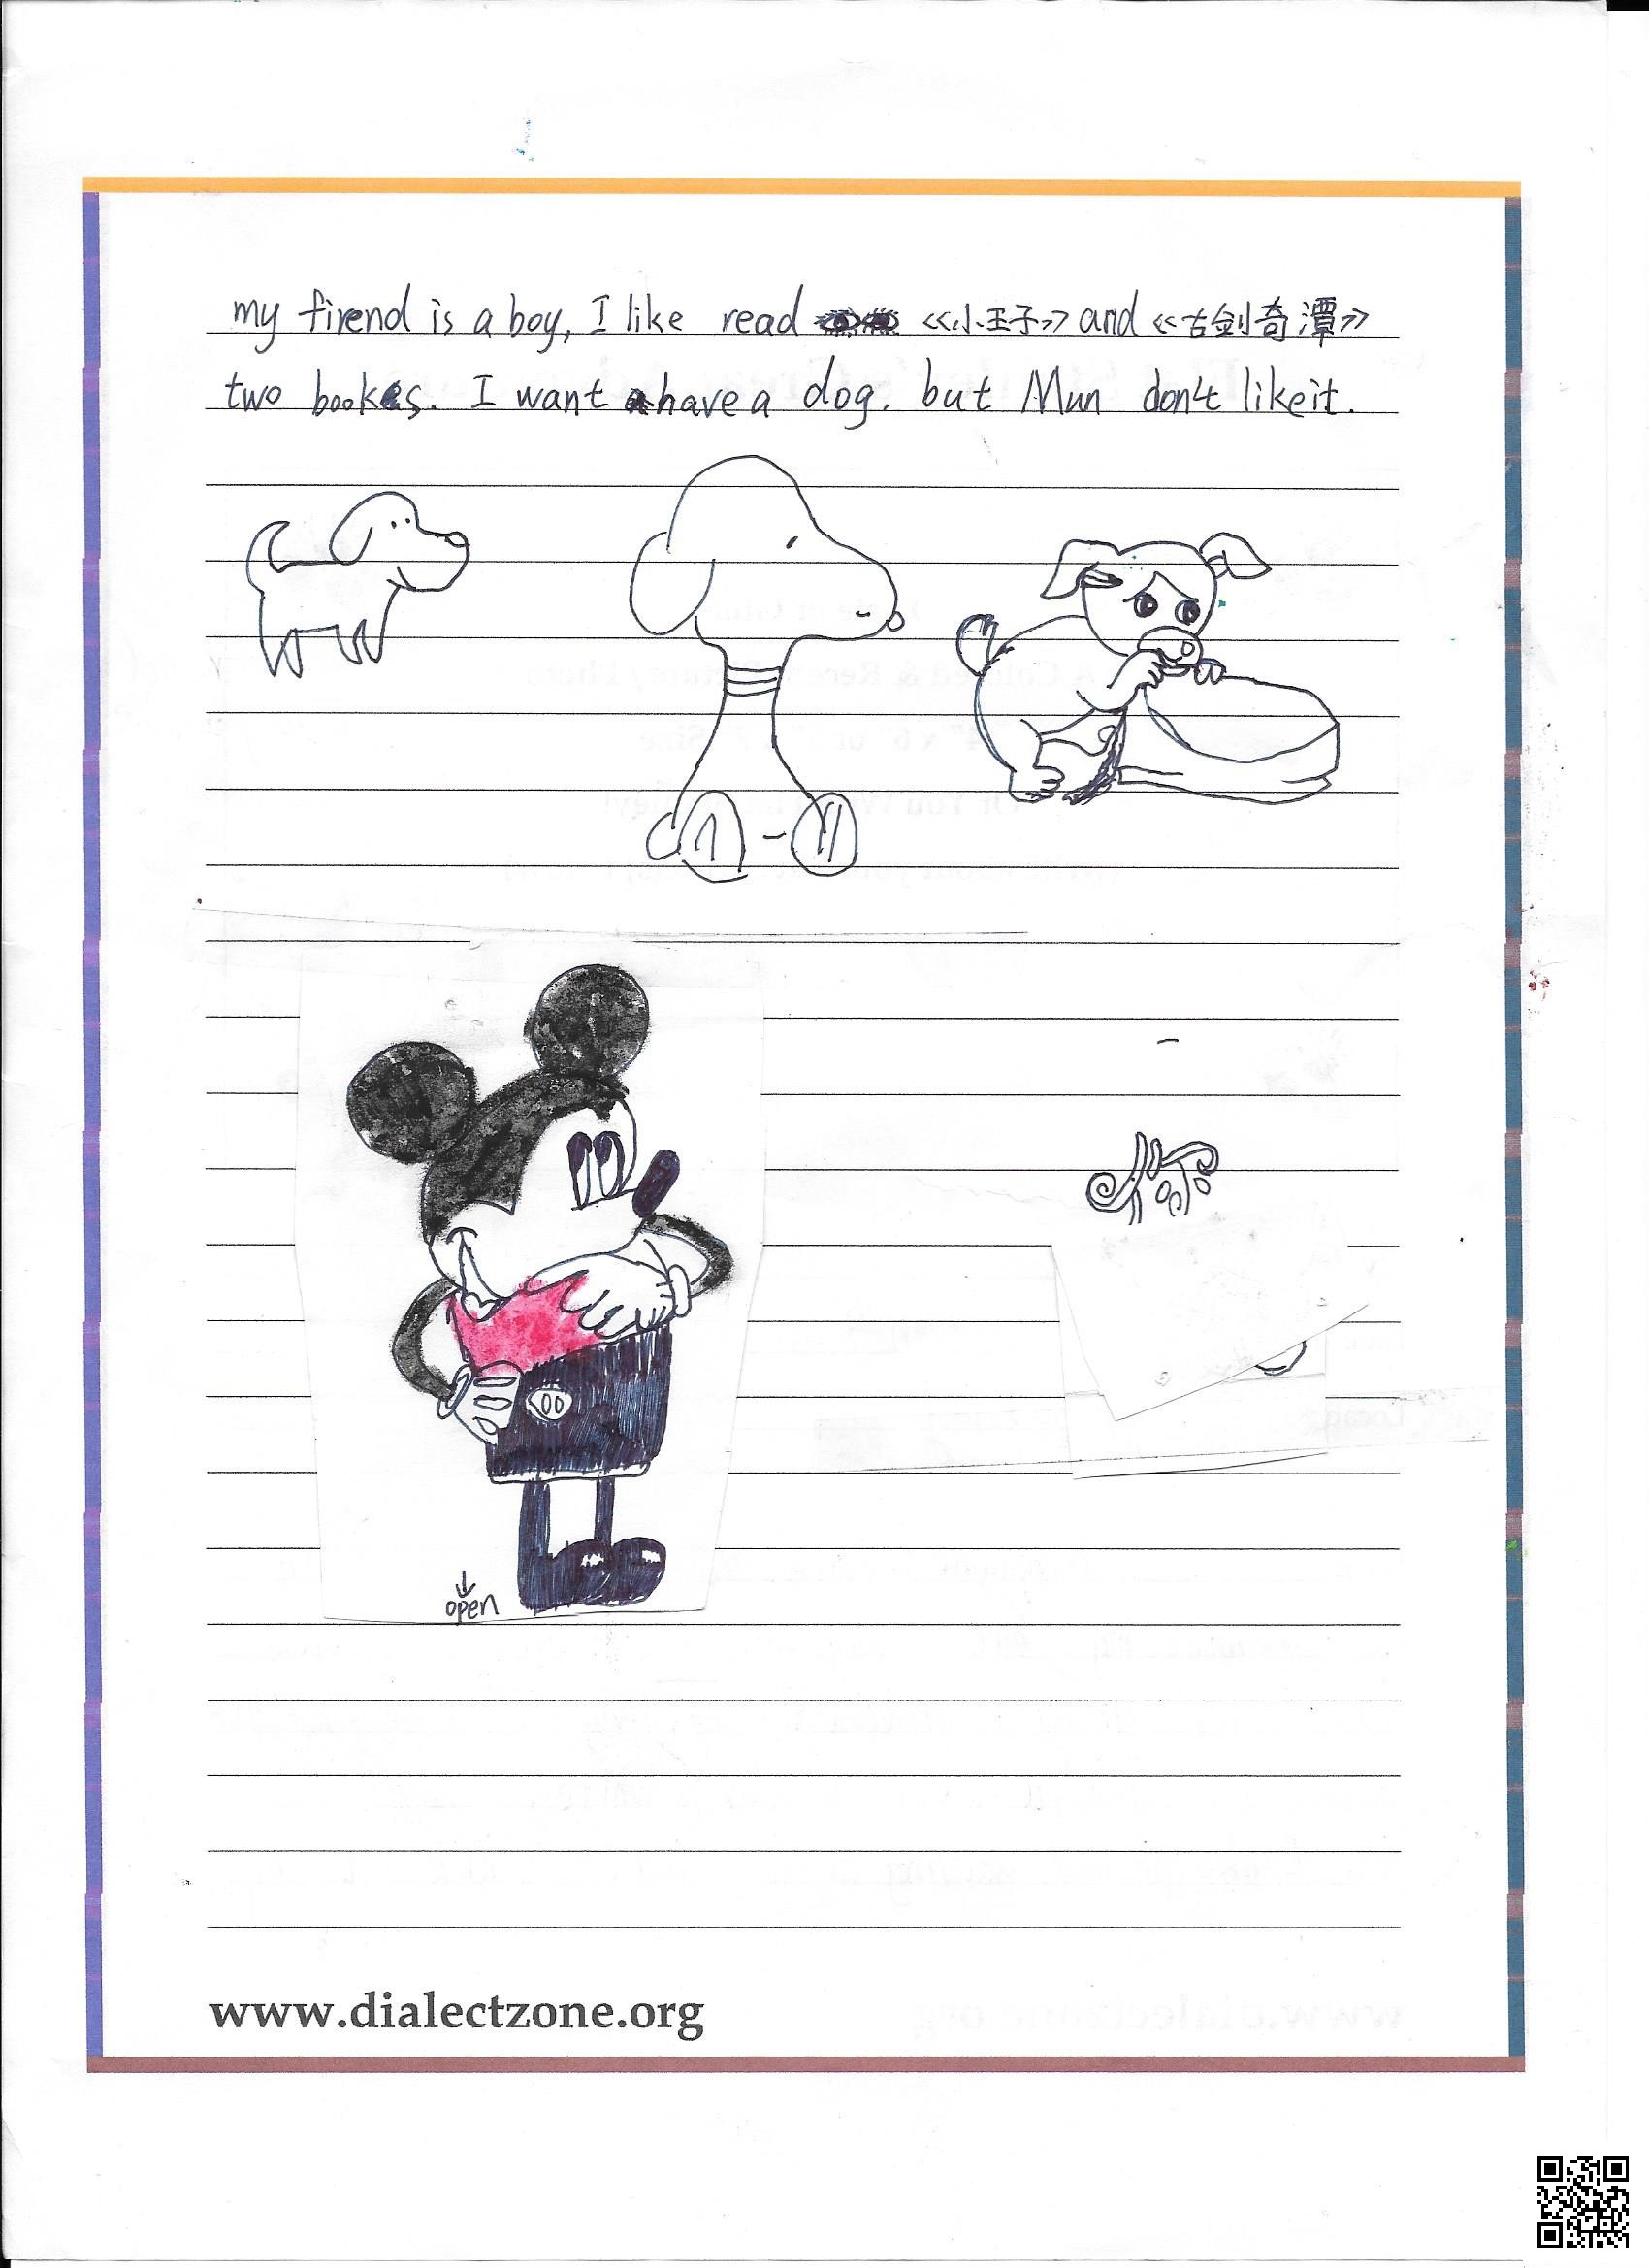 my firend is a boy, I like read 《小王子》 and 《古剑奇潭》
two bookes. I want have a dog. but Mun don't like it.
open
www.dialectzone.org